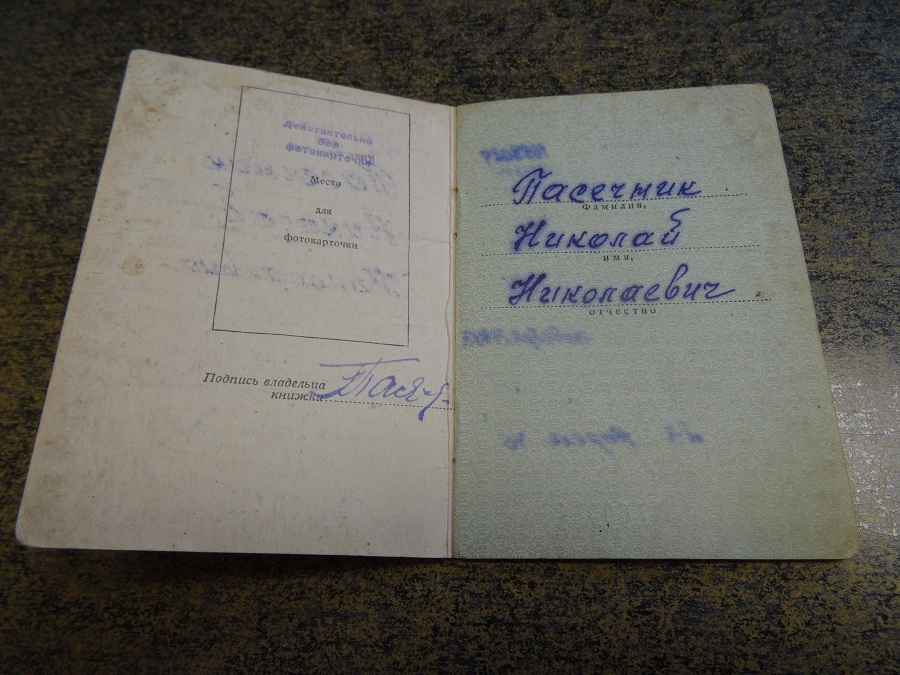 Действительно
без
фотокарточки
Место
для
фотокарточки
Подпись владельца
книжки
Пасечник
фамилия,
Николай
имя,
Николаевич
отчество